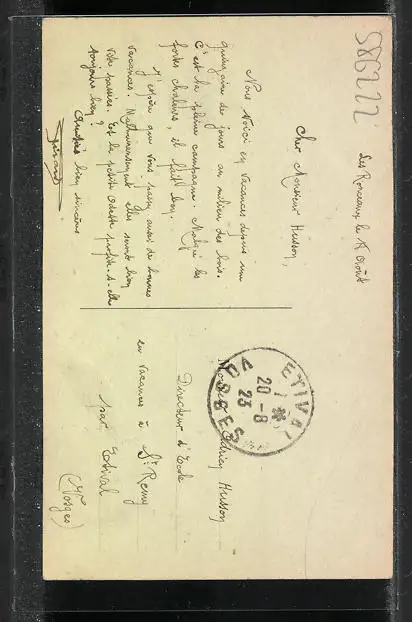 586222
Les Ronceaux le 18 Août
Cher Monsieur Husson,
Nous voici en vacances depuis une
quinzaine de jours au milieu des bois.
C'est la pleine campagne. Malgré les
fortes chaleurs, il fait bon.
J'espère que vous passez aussi de bonnes
vacances. Malheureusement elles sont bien
vite passées. Et la petite Odette profite-t-elle
toujours bien?
Amitiés bien sincères
ETIVAL
20-8
23
VOSGES
Monsieur Husson
Directeur d'Ecole
en vacances à St Remy
par Etival
(Vosges)